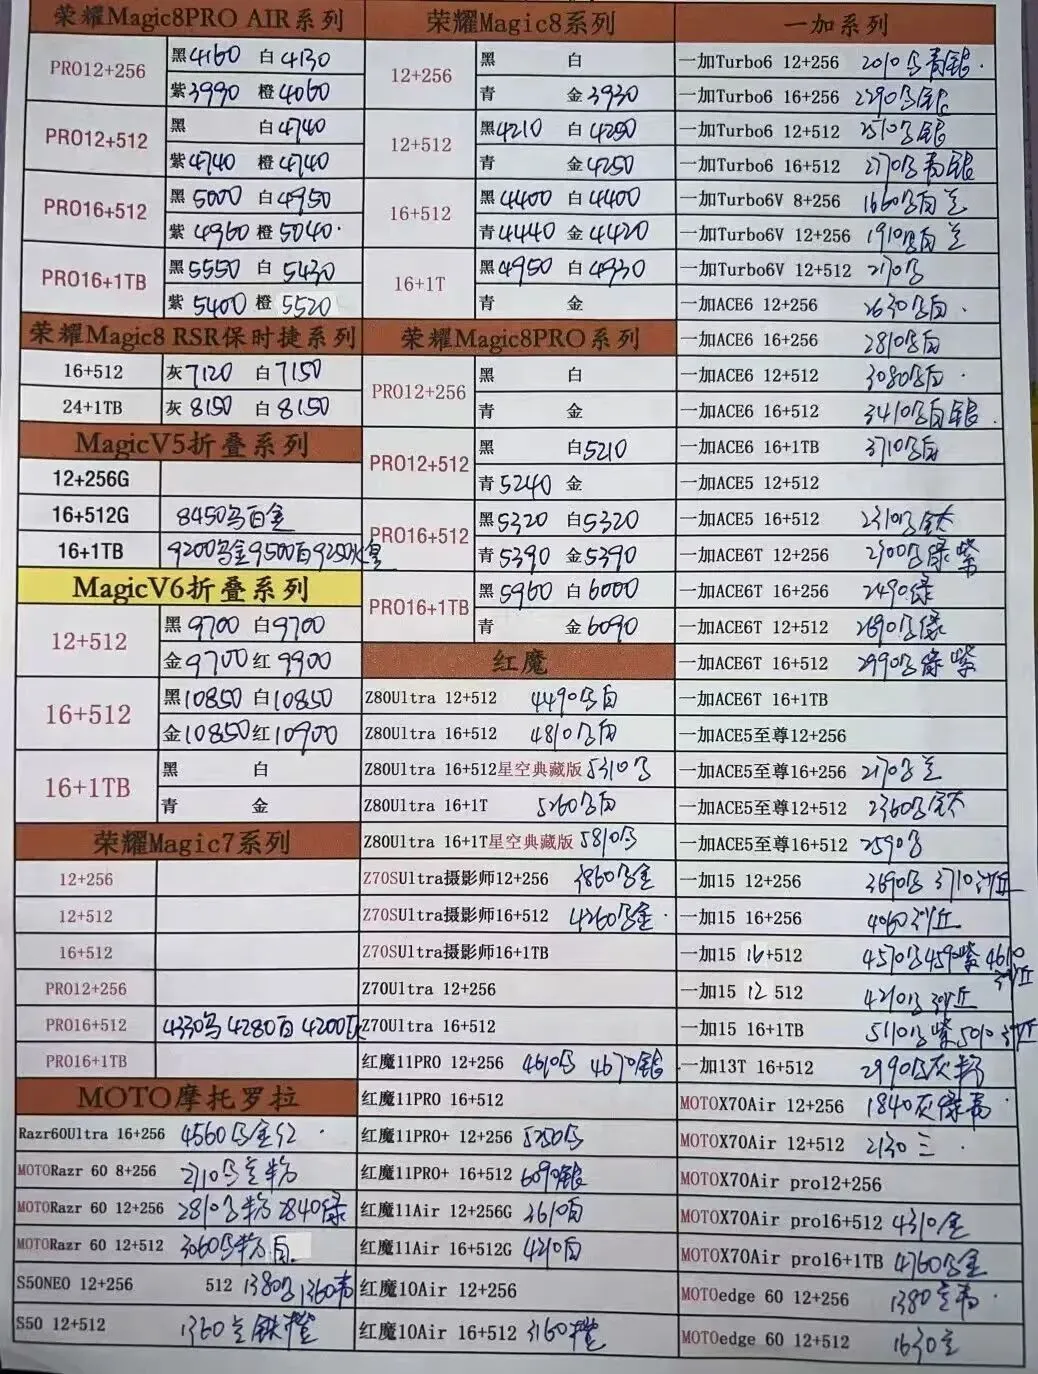 荣耀Magic8PRO AIR系列
PRO12+256 黑4160 白4130
紫3990 橙4060
PRO12+512 黑 白4740
紫4740 橙4740
PRO16+512 黑5000 白4950
紫4960 橙5040
PRO16+1TB 黑5550 白5430
紫5400 橙5520
荣耀Magic8 RSR保时捷系列
16+512 灰7120 白7150
24+1TB 灰8150 白8150
MagicV5折叠系列
12+256G
16+512G 8450 白金
16+1TB 9200 金9500白9250
MagicV6折叠系列
12+512 黑9700 白9700
金9700 红9900
16+512 黑10850 白10850
金10850 红10900
16+1TB 黑 白
青 金
荣耀Magic7系列
12+256
12+512
16+512
PRO12+256
PRO16+512 4330 4280白 4200
PRO16+1TB
MOTO摩托罗拉
Razr60Ultra 16+256 4560 金红
MOTORazr 60 8+256 2710
MOTORazr 60 12+256 2810 2840绿
MOTORazr 60 12+512 3060 白
S50NEO 12+256 512 1380 1360青
S50 12+512 1360 橙
荣耀Magic8系列
12+256 黑 白
青 金3930
12+512 黑4210 白4250
青 金4250
16+512 黑4400 白4400
青4440 金4420
16+1T 黑4950 白4930
青 金
荣耀Magic8PRO系列
PRO12+256 黑 白
青 金
PRO12+512 黑 白5210
青5240 金
PRO16+512 黑5320 白5320
青5390 金5390
PRO16+1TB 黑5960 白6000
青 金6090
红魔
Z80Ultra 12+512 4490 白
Z80Ultra 16+512 4810 白
Z80Ultra 16+512星空典藏版 5310
Z80Ultra 16+1T 5260 白
Z80Ultra 16+1T星空典藏版 5810
Z70SUltra摄影师12+256 3860 金
Z70SUltra摄影师16+512 4260 金
Z70SUltra摄影师16+1TB
Z70Ultra 12+256
Z70Ultra 16+512
红魔11PRO 12+256 4610 4670银
红魔11PRO 16+512
红魔11PRO+ 12+256 5250
红魔11PRO+ 16+512 6090银
红魔11Air 12+256G 3610白
红魔11Air 16+512G 4210白
红魔10Air 12+256
红魔10Air 16+512 3160橙
一加系列
一加Turbo6 12+256 2010 青银
一加Turbo6 16+256 2290 银
一加Turbo6 12+512 2510 银
一加Turbo6 16+512 2770 青银
一加Turbo6V 8+256 1660 白兰
一加Turbo6V 12+256 1910 白兰
一加Turbo6V 12+512 2170
一加ACE6 12+256 2630 白
一加ACE6 16+256 2810 白
一加ACE6 12+512 3080 白
一加ACE6 16+512 3410 白银
一加ACE6 16+1TB 3710 白
一加ACE5 12+512
一加ACE5 16+512 2310 钛
一加ACE6T 12+256 2300 绿紫
一加ACE6T 16+256 2490 绿
一加ACE6T 12+512 2690 绿
一加ACE6T 16+512 2990 绿紫
一加ACE6T 16+1TB
一加ACE5至尊12+256
一加ACE5至尊16+256 2170 兰
一加ACE5至尊12+512 2360 钛
一加ACE5至尊16+512 2590
一加15 12+256 3690 3710沙丘
一加15 16+256 4060沙丘
一加15 16+512 4570 4590紫 4610沙丘
一加15 12 512 4210 沙丘
一加15 16+1TB 5110 紫5010沙丘
一加13T 16+512 2990 灰粉
MOTOX70Air 12+256 1840灰绿青
MOTOX70Air 12+512 2130三
MOTOX70Air pro12+256
MOTOX70Air pro16+512 4310金
MOTOX70Air pro16+1TB 4760 金
MOTOedge 60 12+256 1380兰青
MOTOedge 60 12+512 1630兰